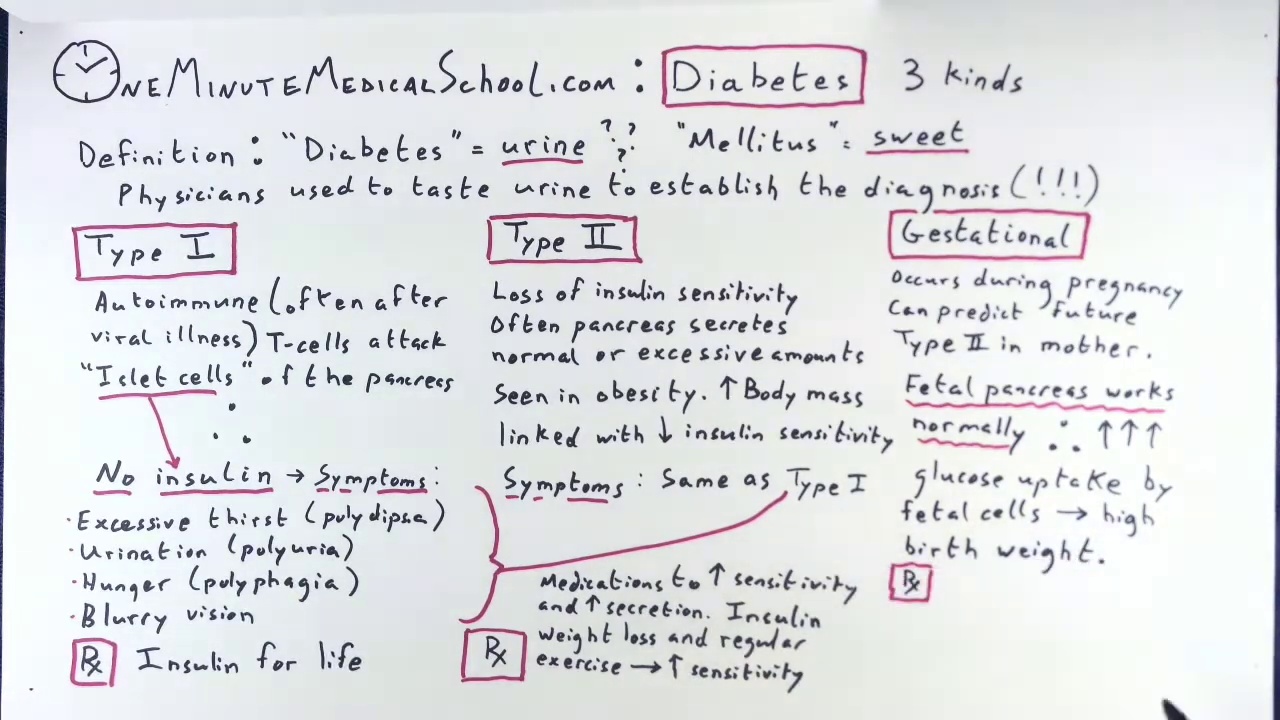 ONEMINUTEMEDICALSCHOOL.COM : Diabetes 3 kinds
Definition : "Diabetes" = urine ? ? ? "Mellitus" = sweet
Physicians used to taste urine to establish the diagnosis (!!!)
Type I
Autoimmune (often after
viral illness) T-cells attack
"Islet cells" of the pancreas
∴
No insulin → Symptoms :
· Excessive thirst (polydipsa)
· Urination (polyuria)
· Hunger (polyphagia)
· Blurry vision
Rx Insulin for life
Type II
Loss of insulin sensitivity
Often pancreas secretes
normal or excessive amounts
Seen in obesity. ↑ Body mass
linked with ↓ insulin sensitivity
Symptoms : Same as Type I
Rx
Medications to ↑ sensitivity
and ↑ secretion. Insulin
weight loss and regular
exercise → ↑ sensitivity
Gestational
Occurs during pregnancy
Can predict future
Type II in mother.
Fetal pancreas works
normally ∴ ↑↑↑
glucose uptake by
fetal cells → high
birth weight.
Rx